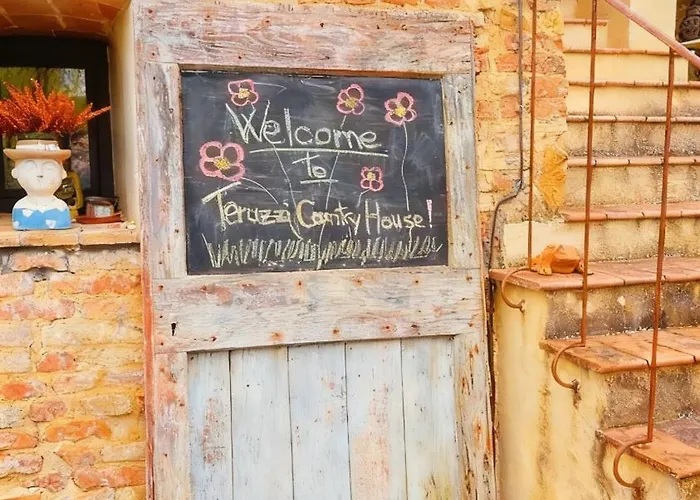 Welcome
to
Teruzzi Cantry House!